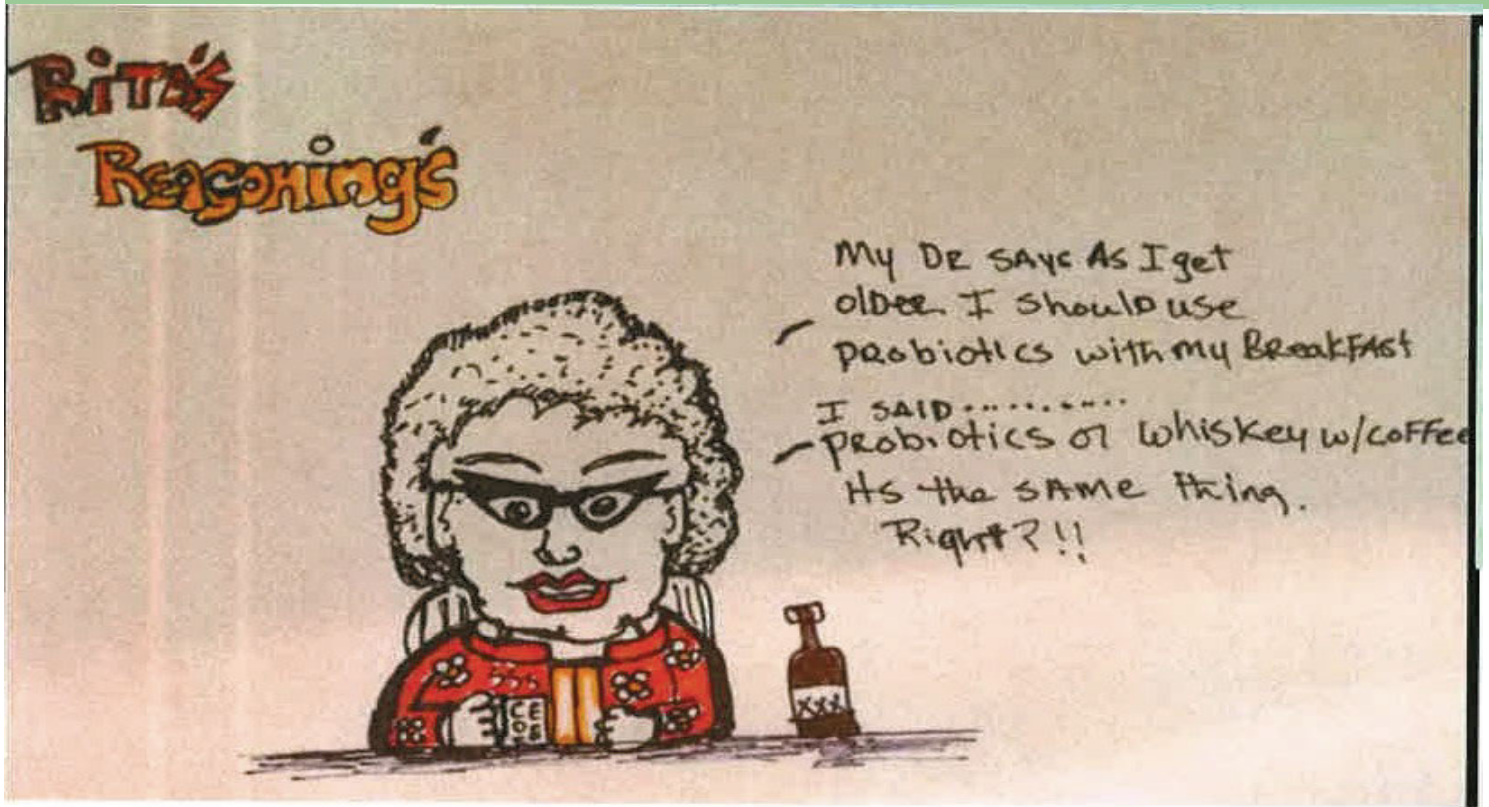 RiTA's
Reasoning's
My DR SAYS AS I get
olDer I should use
probiotics with my BreakFAst
I SAID...........
probiotics or whiskey w/coffee
Its the SAME thing.
Right?!!
XXX